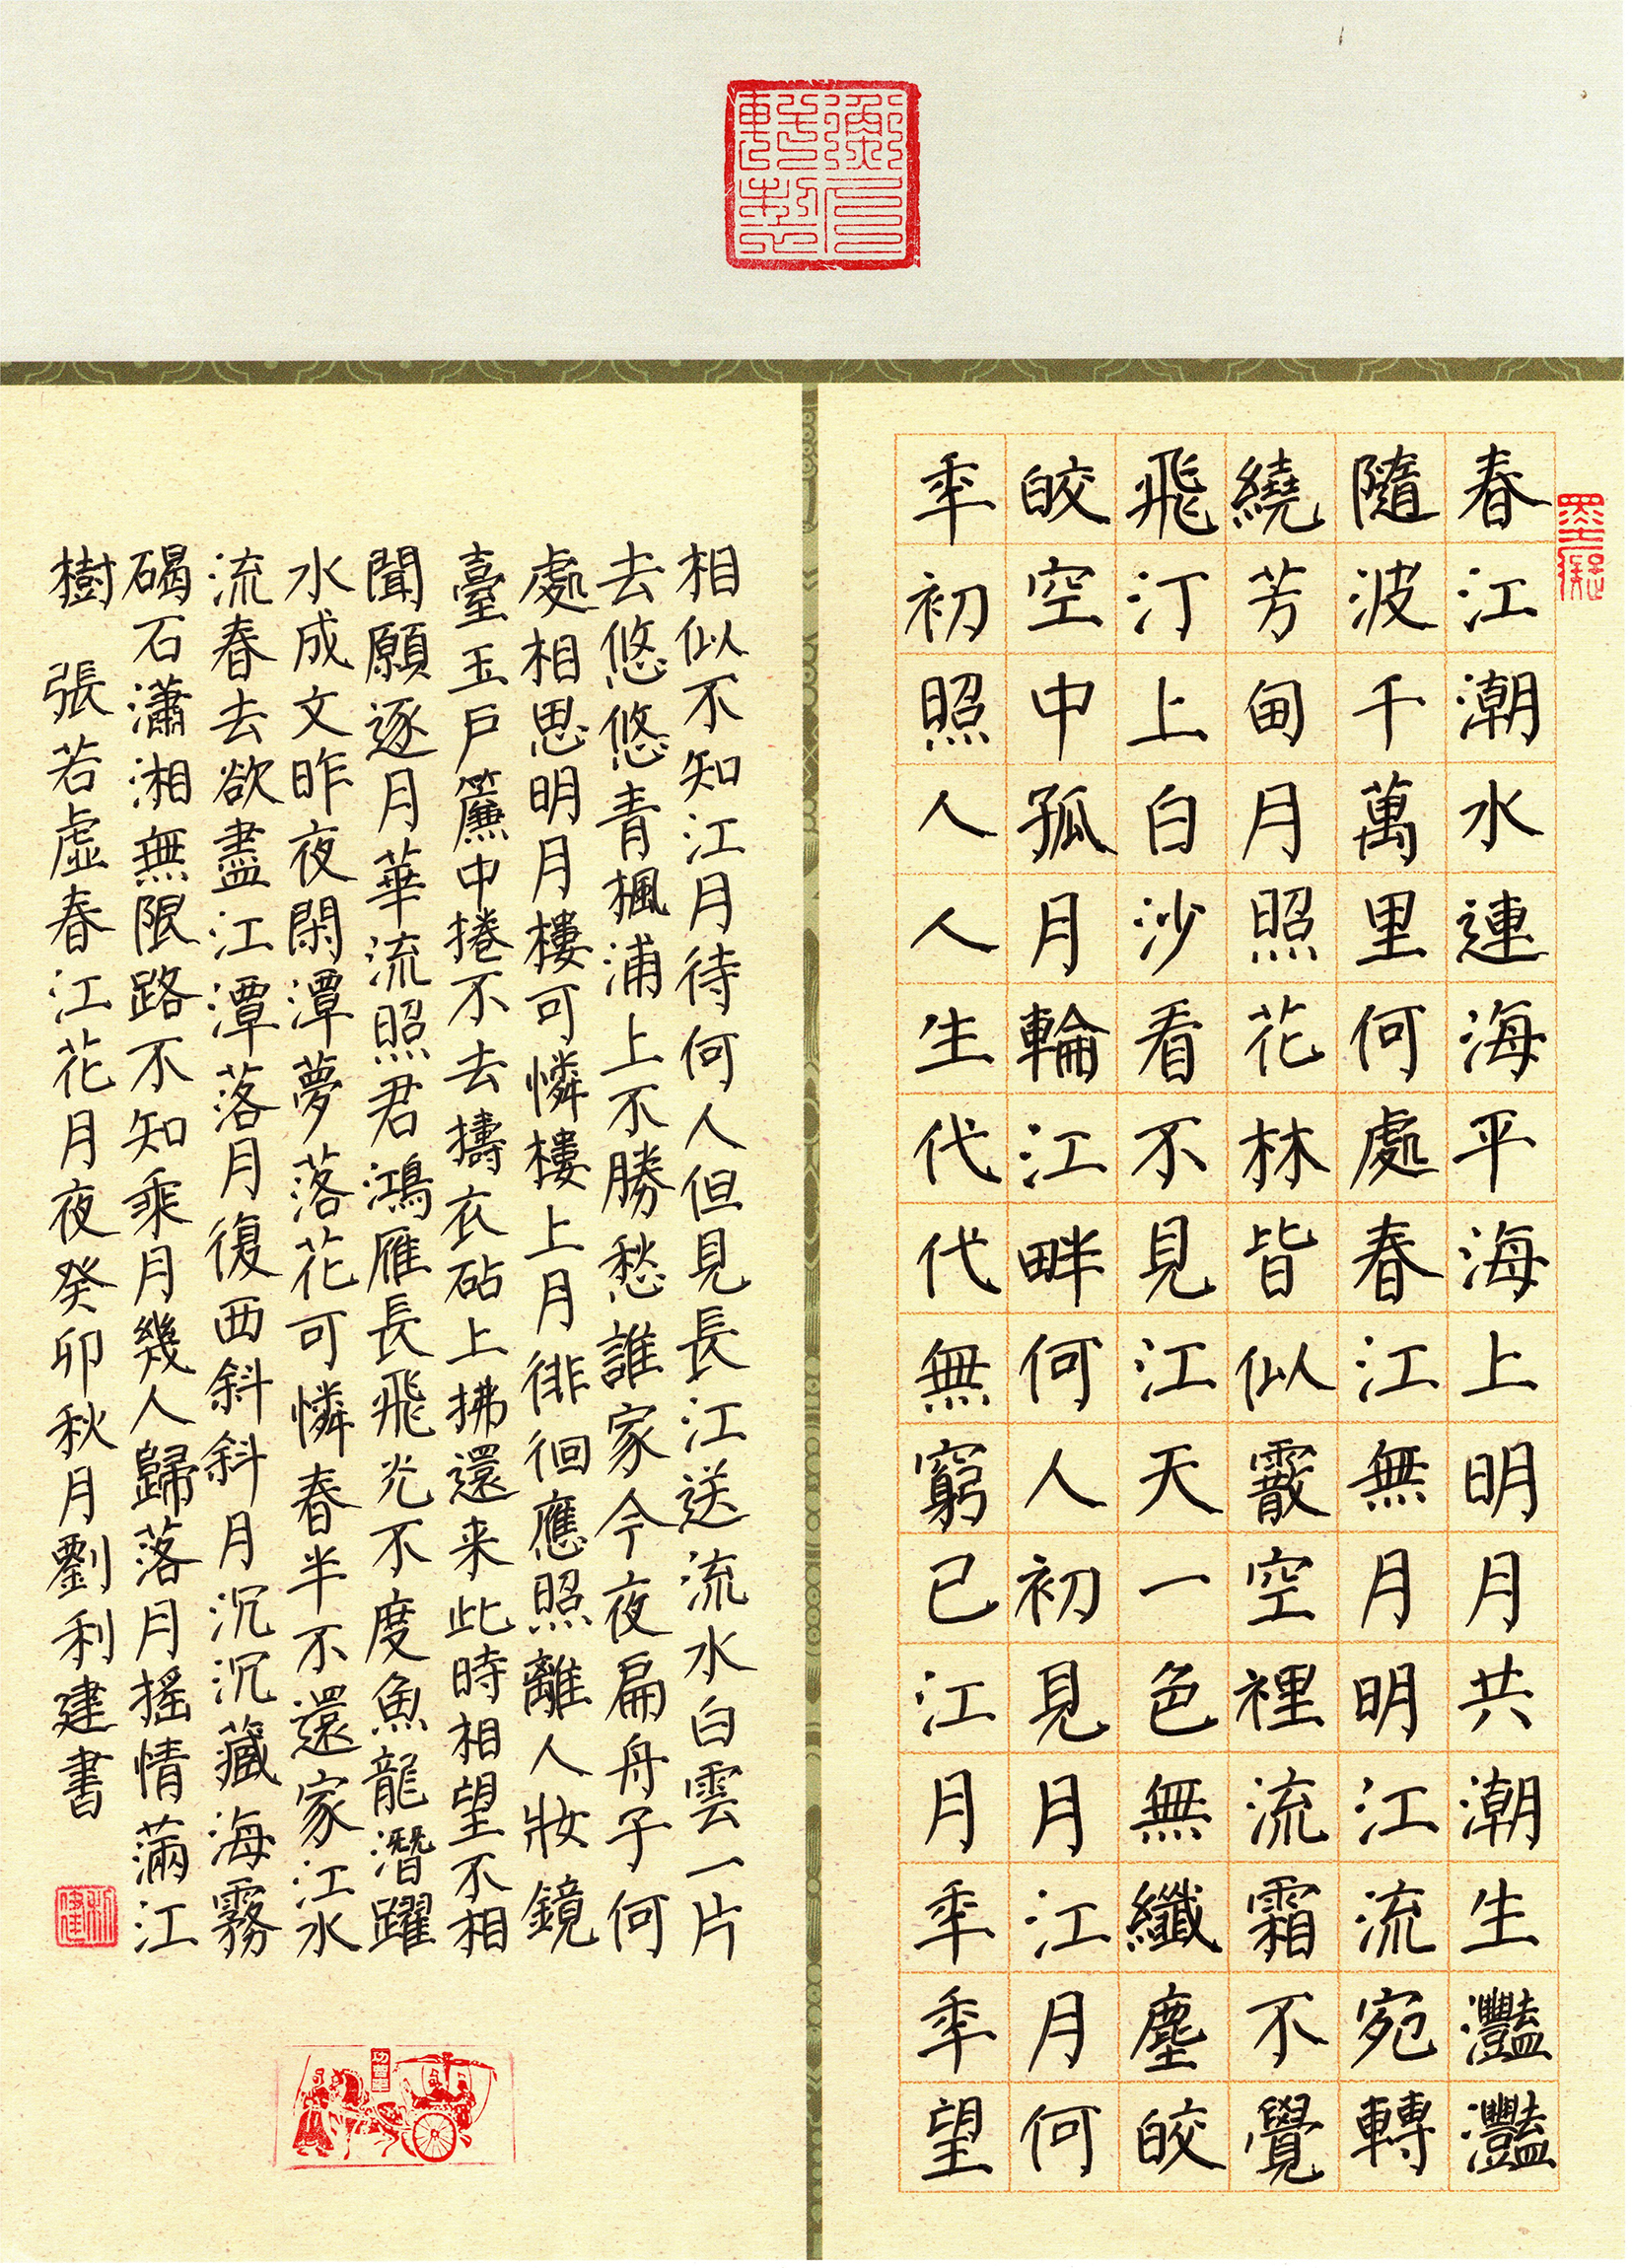 春江潮水連海平海上明月共潮生灩灩
隨波千萬里何處春江無月明江流宛轉
繞芳甸月照花林皆似霰空裡流霜不覺
飛汀上白沙看不見江天一色無纖塵皎
皎空中孤月輪江畔何人初見月江月何
秊初照人人生代代無窮已江月秊秊望
相似不知江月待何人但見長江送流水白雲一片
去悠悠青楓浦上不勝愁誰家今夜扁舟子何
處相思明月樓可憐樓上月徘徊應照離人妝鏡
臺玉戶簾中捲不去擣衣砧上拂還来此時相望不相
聞願逐月華流照君鴻雁長飛光不度魚龍潛躍
水成文昨夜閑潭夢落花可憐春半不還家江水
流春去欲盡江潭落月復西斜斜月沉沉藏海霧
碣石瀟湘無限路不知乘月幾人歸落月搖情滿江
樹 張若虛春江花月夜癸卯秋月劉利建書
利建